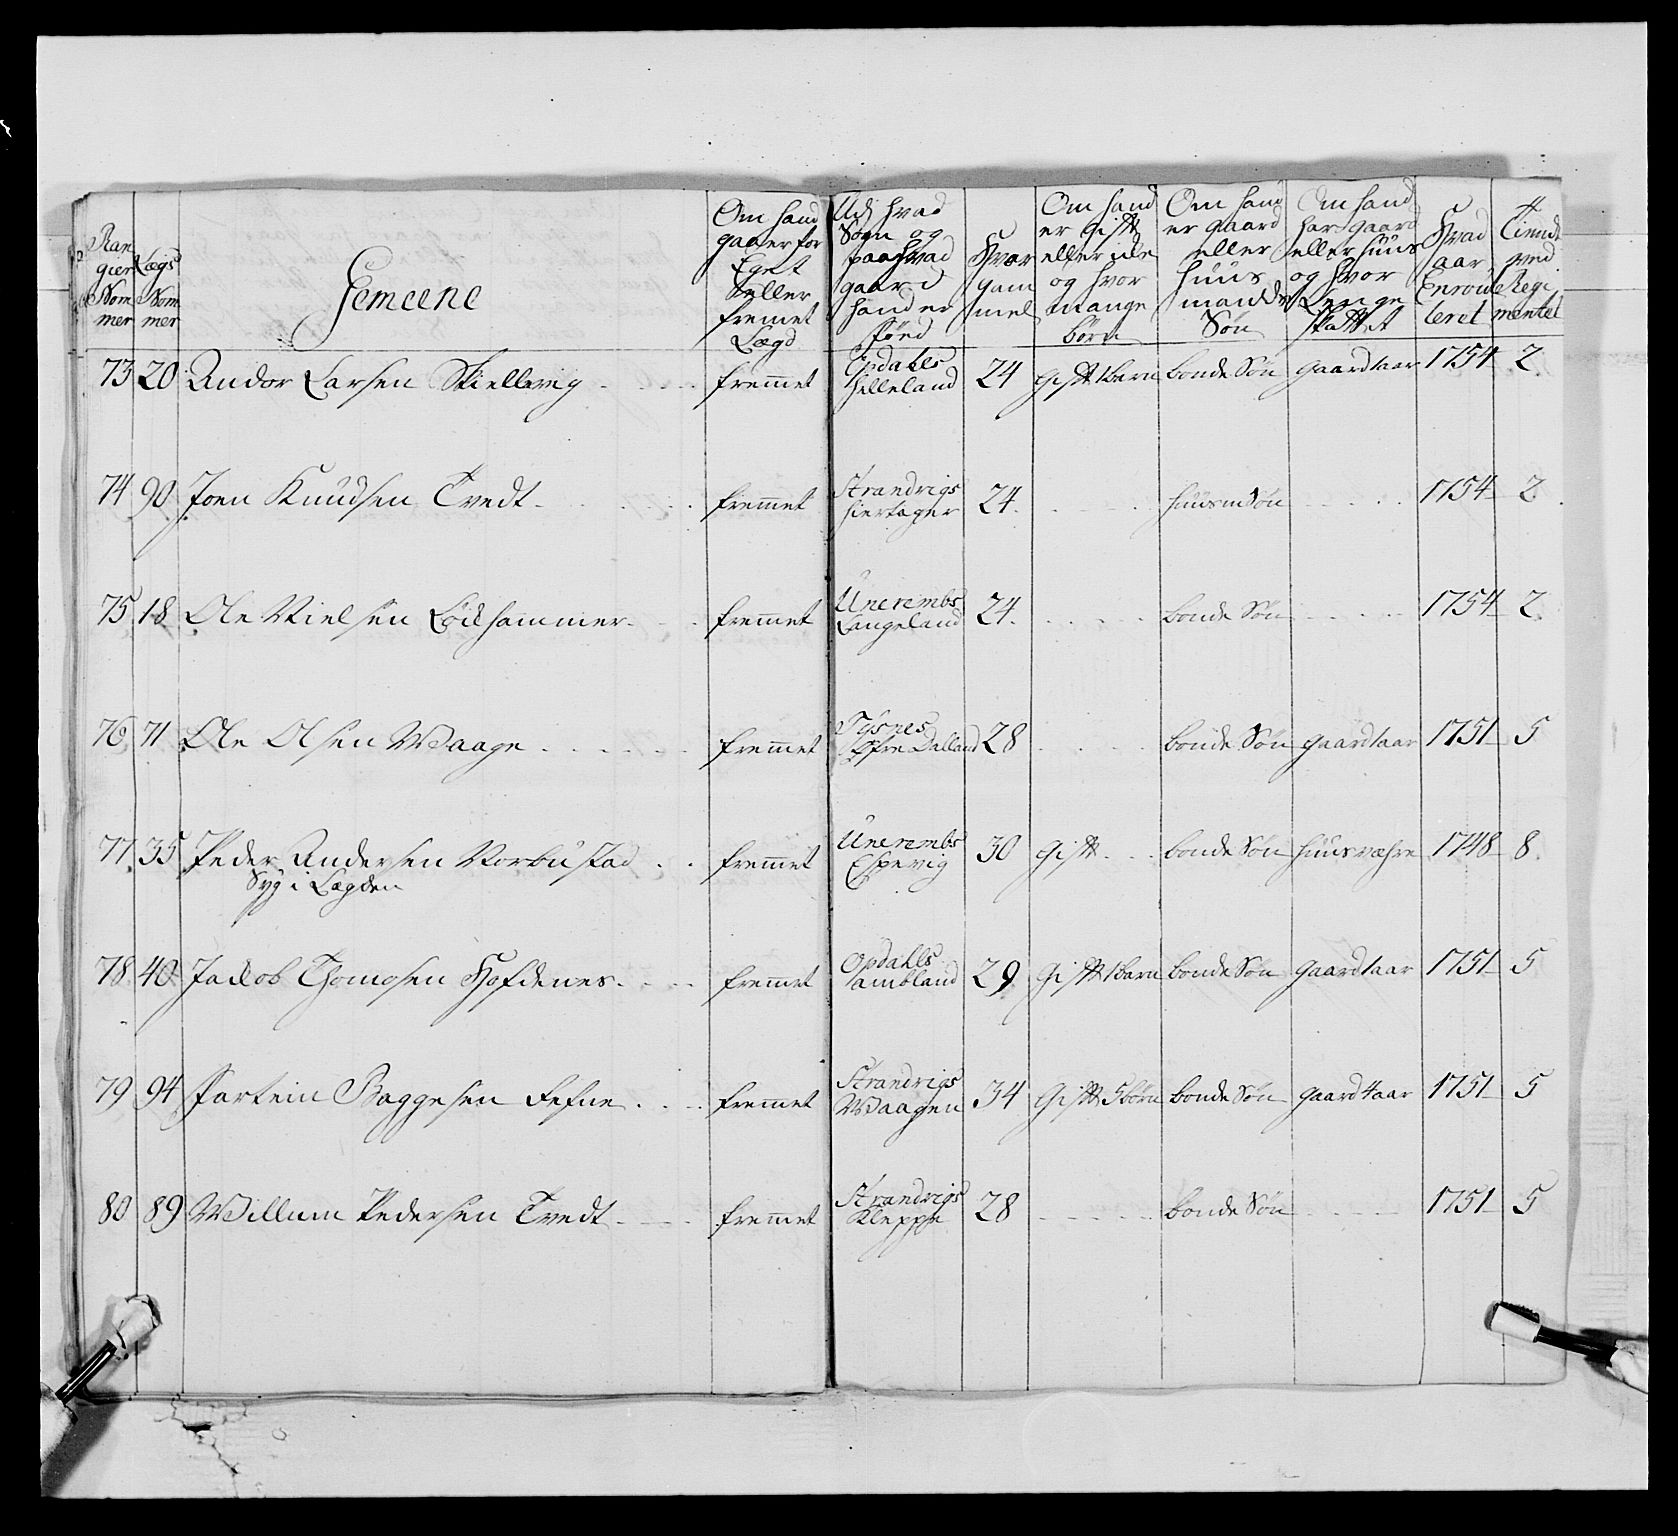 Ran
gier
Nom
mer
Lægs
Nom
mer
Gemeene
Om hand
gaaer for
Eget
Eller
fremet
Lægd
Udj hvad
Sogn og
paa hvad
gaard
hand er
föed
Hvor
gam
mel
Om hand
er gift
eller ide
og hvor
mange
börn
Om hand
er gaard
eller
huus
mands
Sön
Om hand
har gaard
eller huus
og hvor
Lenge
Skattet
Hvad
aar
Enroul
leret
Tiendt
ved
Regi
mentet
73 20 Andor Larsen Skiellevig fremmet Opdahls Helleland 24 gift 1 barn bonde Sön gaard 1 aar 1754 2
74 90 Joen Knudsen Tvedt fremmet Strandvigs hiertager 24 huusm Sön 1754 2
75 18 Ole Nielsen Lödhammer fremmet Unerembs Langeland 24 bonde Sön 1754 2
76 71 Ole Olsen Waage fremmet Tysnes Öfre Dalland 28 bonde Sön gaard 1 aar 1751 5
77 35 Peder Andersen Norbustad fremmet Unerembs Espevig 30 gift bonde Sön huusværre 1748 8
Syg i Lægden
78 40 Jacob Thomosen Hofdenes fremmet Opdahls ambland 29 gift 1 barn bonde Sön gaard 1 aar 1751 5
79 94 Partein Baggesen Refne fremmet Strandvigs Waagen 34 gift 5 börn bonde Sön gaard 4 aar 1751 5
80 89 Willum Pedersen Tvedt fremmet Strandvigs Kleppe 28 bonde Sön 1751 5